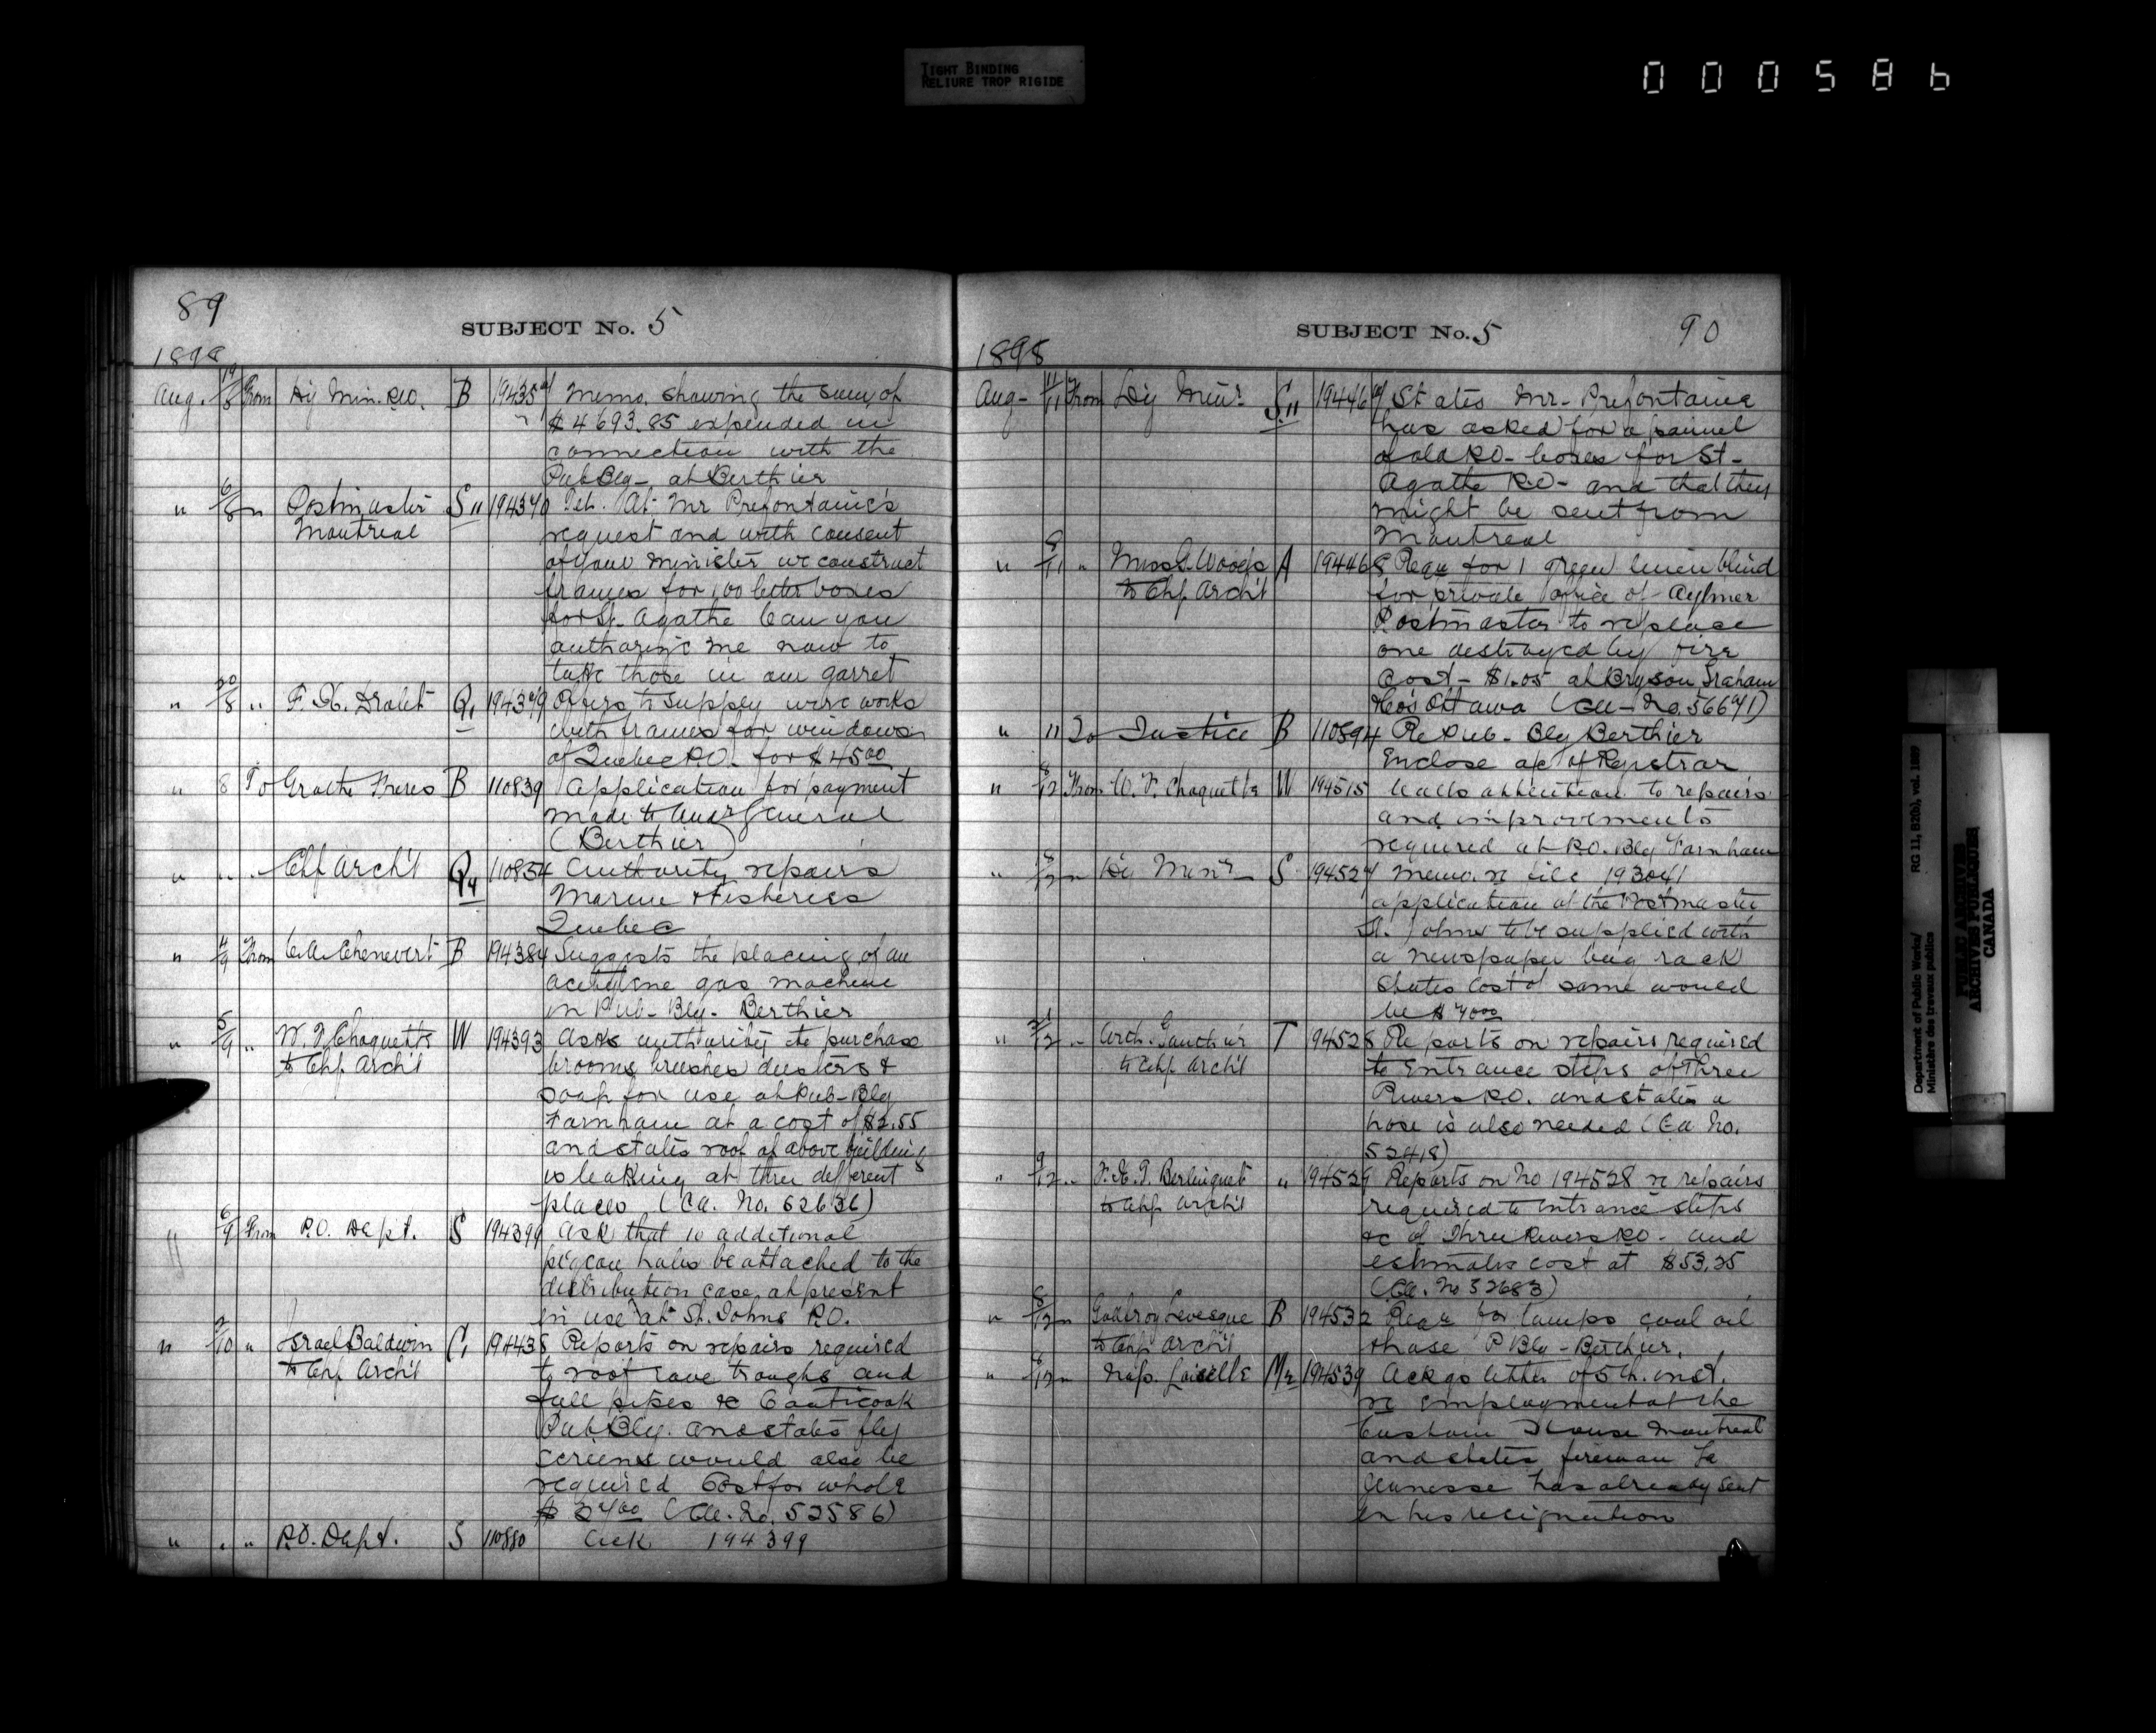 TIGHT BINDING
RELIURE TROP RIGIDE
000586
89
SUBJECT No. 5
1898
Aug. 19/8 From Dy Min. P.W. B 19435 Memo. showing the sum of
$4693.85 expended in
connection with the
Pub Blg- at Berthier
" 6/8 " Postmaster S11 194370 Tel. At Mr Prefontaine's
Montreal request and with consent
of your Minister we construct
frames for 100 letter boxes
for St. Agathe Can you
authorize me now to
take those in our garret
" 20/8 " F. X. Drolet Q1 194379 Offers to supply wire works
with frames for windows
of Quebec P.O. for $45.00
" 8 To Grothe Freres B 110839 Application for payment
made to Audr General
(Berthier)
" " " Chf Archt Q4 110854 Authority repairs
Marine & Fisheries
Quebec
" 4/9 From C.A. Chenevert B 194384 Suggests the placing of an
acetylene gas machine
in Pub- Blg- Berthier
" 5/9 " W. F. Choquette W 194393 Asks authority to purchase
to Chf Archt brooms brushes dusters &
soap for use at Pub- Blg
Farnham at a cost of $2.55
and states roof of above building
is leaking at three different
places (Ca. No. 52636)
" 6/9 From P.O. Dept. S 194399 Ask that 10 additional
pigeon holes be attached to the
distribution case at present
in use at St. Johns P.O.
" 2/10 " Israel Baldwin C1 194438 Reports on repairs required
to Chf Archt to roof eave troughs and
fall pipes &c Coaticook
Pub. Blg. and states fly
screens would also be
required Cost for whole
(Ca. No. 52586)
" " " P.O. Dept. S 110880 Ack 194399
SUBJECT No. 5
90
1898
Aug- 11/11 From Dy Minr S11 194467 States Mr- Prefontaine
has asked for a pannel
of old P.O- boxes for St-
Agathe P.O- and that they
might be sent from
Montreal
" 9/11 " Miss G. Woods A 194468 Requ for 1 green linen blind
to Chf Archt for private office of Aylmer
Postmaster to replace
one destroyed by fire
Cost- $1.05 at Bryson Graham
&Co's Ottawa
" 11 To Justice B 110894 Re Pub- Blg Berthier
Enclose a/c of Registrar
" 8/12 From W. F. Choquette W 194515 Calls attention to repairs
and improvements
required at P.O. Blg Farnham
" " Dy Minr S 194527 Memo. re file 193041
application of the Postmaster
St. Johns to be supplied with
a newspaper bag rack
States cost of same would
be
" " Arch. Gauthier T 94528 Reports on repairs required
to Chf. Archt to entrance steps of Three
Rivers P.O. and states a
hose is also needed (Ca. No.
52418)
" 9/12 " F. X. T. Berlinguet " 194529 Reports on No 194528 re repairs
to Chf Archt required to entrance steps
&c of Three Rivers P.O- and
estimates cost at $53.25
(Ca. No 52683)
" 8/12 " Godfroy Levesque B 194532 Requ for lamps coal oil
to Chf Archt & hose P Blg- Berthier.
" 6/12 " Nap. Loiselle M2 194539 Ackgs letter of 5th. inst.
re employment at the
Custom House Montreal
and states fireman La
Jeunesse has already sent
in his resignation
Department of Public Works/
Ministère des travaux publics
RG 11, B2(b), vol. 1089
PUBLIC ARCHIVES
ARCHIVES PUBLIQUES
CANADA